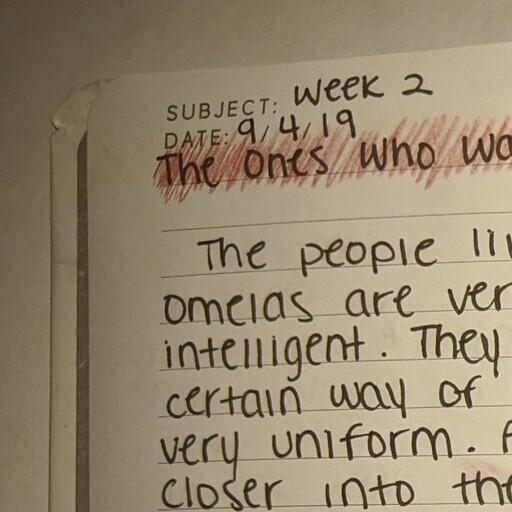 SUBJECT: Week 2
DATE: 9/4/19
The Ones who wa
The people li
omelas are ver
intelligent. They
certain way of
very uniform.
closer into the